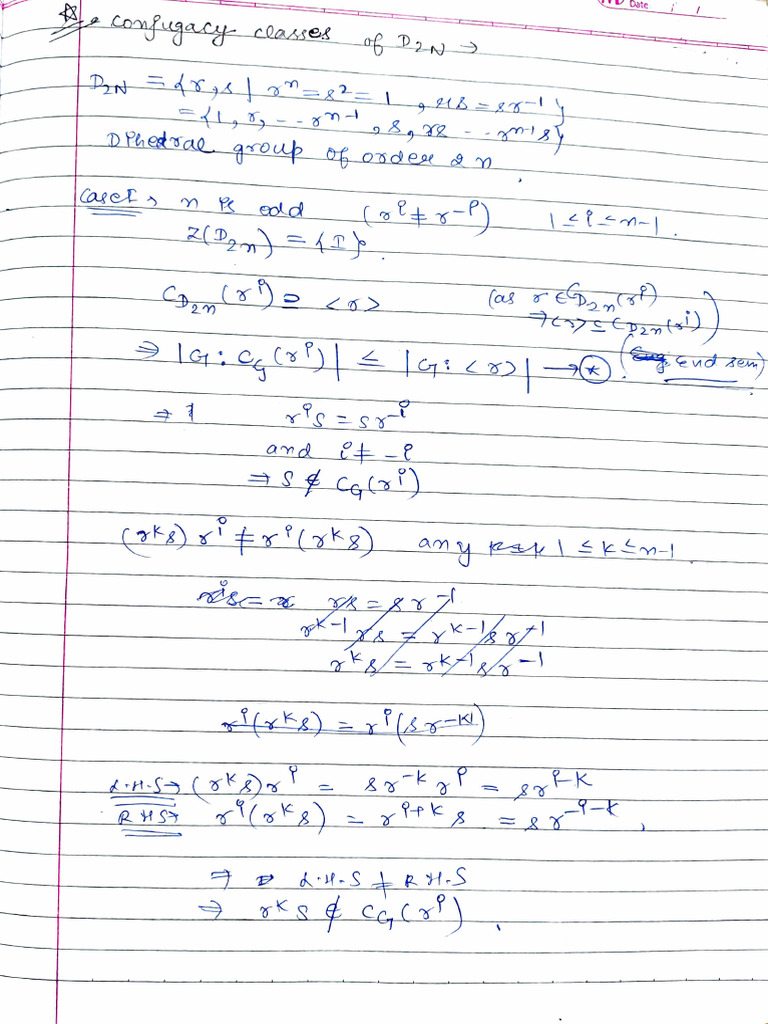 Date / /
* conjugacy classes of D2N →
D2N = {r, s | r^n = s^2 = 1, rs = sr^-1}
= {1, r, -- r^n-1, s, rs -- r^n-1 s}
Dihedral group of order 2n.
Case I → n is odd (r^i ≠ r^-i) 1 ≤ i ≤ n-1.
Z(D2n) = {I}.
C_D2n(r^i) ⊇ <r> (as r ∈ C_D2n(r^i)
⇒ <r> ≤ C_D2n(r^i))
⇒ |G : C_G(r^i)| ≤ |G : <r>| → ⊛ (End sem)
⇒ r^i s = s r^-i
and i ≠ -i
⇒ s ∉ C_G(r^i)
(r^k s) r^i ≠ r^i (r^k s) any 1 ≤ k ≤ n-1
rs = s r^-1
r^k-1 rs = r^k-1 s r^-1
r^k s = r^k-1 s r^-1
r^i (r^k s) = r^i (s r^-k)
L.H.S → (r^k s) r^i = s r^-k r^i = s r^i-k
R H S → r^i (r^k s) = r^i+k s = s r^-i-k,
⇒ L.H.S ≠ R H.S
⇒ r^k s ∉ C_G(r^i).